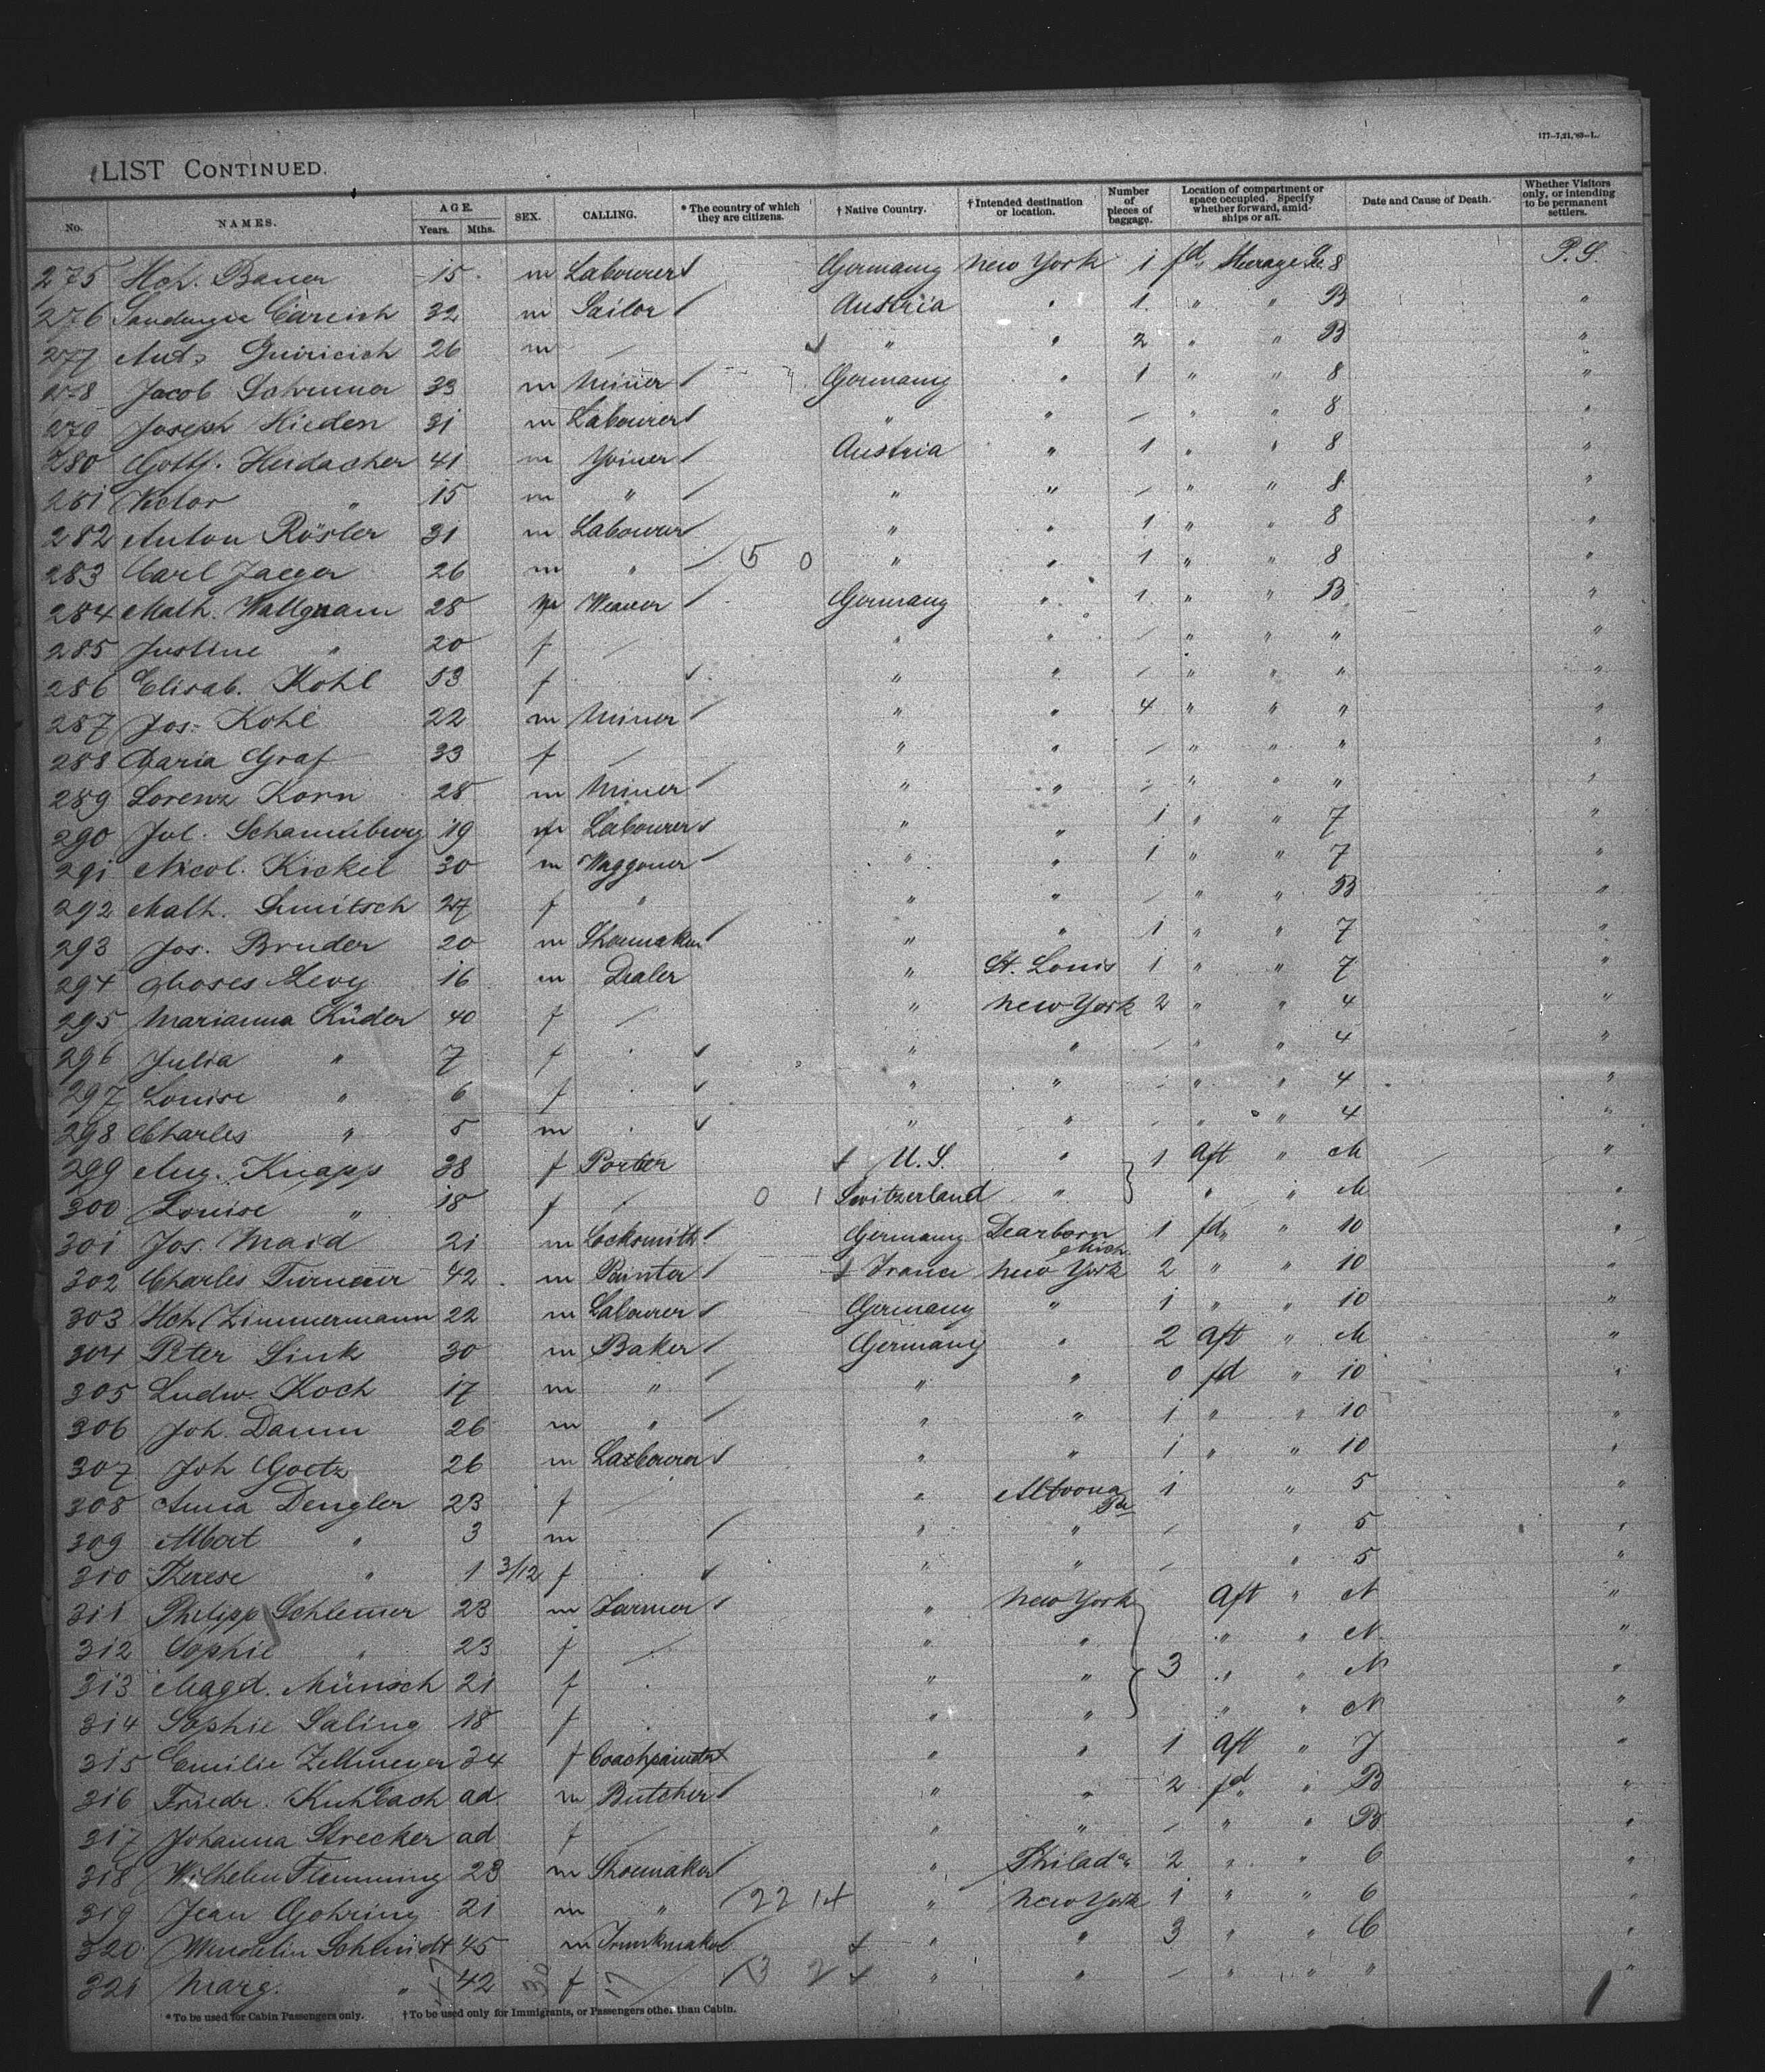 177—7,21,'93—L.
LIST CONTINUED.
No. NAMES. AGE. Years. Mths. SEX. CALLING. * The country of which they are citizens. † Native Country. † Intended destination or location. Number of pieces of baggage. Location of compartment or space occupied. Specify whether forward, amidships or aft. Date and Cause of Death. Whether Visitors only, or intending to be permanent settlers.
275 Hch. Bauer 15 m Labourer Germany New York 1 fd Steerage 8 P.S.
276 Careich 32 m Sailor Austria " 1 " " B "
277 Ant. 26 m / " " 2 " " B "
278 Jacob 33 m Miner Germany " 1 " " 8 "
279 Joseph Hieden 31 m Labourer " " / " " 8 "
280 Gottf. Heidacher 41 m Austria " 1 " " 8 "
281 Victor " 15 m " " " / " " 8 "
282 Anton Rösler 31 m Labourer " " 1 " " 8 "
283 Carl Jaeger 26 m " 5 0 " " 1 " " 8 "
284 Math. Wallgram 28 m Weaver Germany " 1 " " B "
285 Justine " 20 f / " " / " " " "
286 Elisab. Kohl 53 f " " / " " " "
287 Jos. Kohl 22 m Miner " " 4 " " " "
288 Maria Graf 33 f / " " / " " " "
289 Lorenz Korn 28 m Miner " " / " " " "
290 Jul. Schaumburg 19 m Labourer " " 1 " " 7 "
291 Nicol. Kickel 30 m Waggoner " " 1 " " 7 "
292 Math. Smitsch 27 f " " " / " " B "
293 Jos. Bruder 20 m Shoemaker " " 1 " " 7 "
294 Moses Levy 16 m Dealer " St. Louis 1 " " 7 "
295 Marianna Küder 40 f / " New York 2 " " 4 "
296 Julia " 7 f " " / " " 4 "
297 Louise " 6 f " " / " " 4 "
298 Charles " 5 m " " / " " 4 "
299 Aug. Knapp 38 f Porter U.S. " 1 Aft " M "
300 Louise " 18 f / 0 1 Switzerland " " " M "
301 Jos. Maid 21 m Locksmith Germany Dearborn Mich. 1 fd " 10 "
302 Charles 42 m Painter France New York 2 " " 10 "
303 Hch Zimmermann 22 m Labourer Germany " 1 " " 10 "
304 Peter Sink 30 m Baker Germany " 2 Aft " M "
305 Ludw. Koch 17 m " " " 0 fd " 10 "
306 Joh. Daum 26 m " " " 1 " " 10 "
307 Joh Goetz 26 m Labourer " " 1 " " 10 "
308 Anna Dengler 23 f / " Altoona Pa 1 " 5 "
309 Albert " 3 m " " / " 5 "
310 Therese " 1 3/12 f " " / " 5 "
311 Philipp Schlemer 23 m Farmer " New York Aft " N "
312 Sophie " 23 f / " " " " N "
313 Magd. Münsch 21 f " " 3 " " N "
314 Sophie Saling 18 f " " " " N "
315 Emilie Zellmeyer 34 f Coachpainter " " 1 Aft " J "
316 Friedr. Kuhbach ad m Butcher " " 2 fd " B "
317 Johanna Strecker ad f / " " / " " B "
318 Wilhelm Flemming 23 m Shoemaker " Philada 2 " " 6 "
319 Jean Gohring 21 m " 22 14 " New York 1 " " 6 "
320 Wendelin Schmidt 45 m Trunkmaker " " 3 " " C "
321 Marg. " 42 f / 3 2 " " / " " " "
* To be used for Cabin Passengers only. † To be used only for Immigrants, or Passengers other than Cabin.